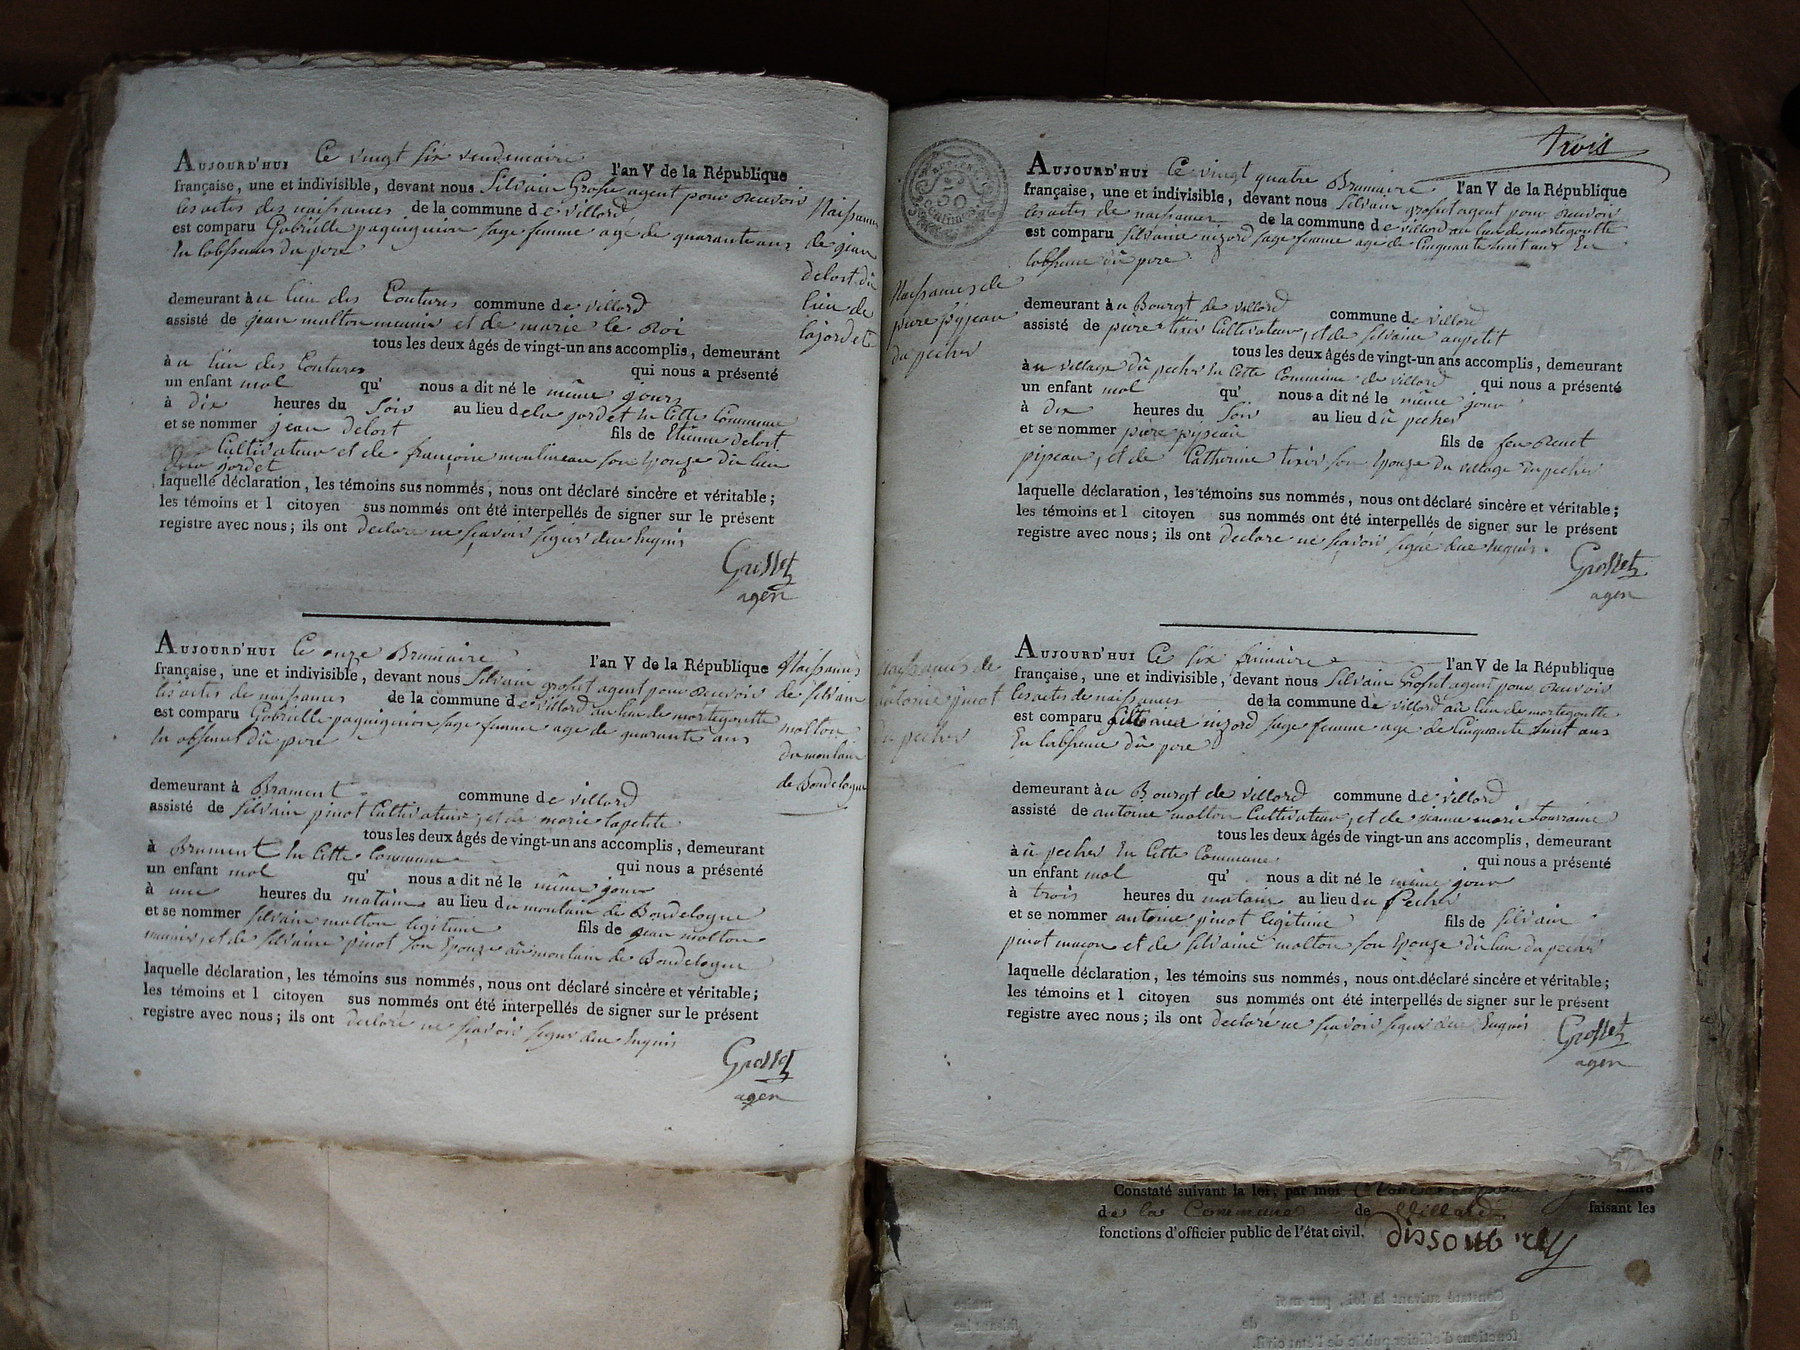 AUJOURD'HUI Ce vingt six vendemiaire l'an V de la République
française, une et indivisible, devant nous Silvain Grosset agent pour recevoir
les actes des naissances de la commune de villard
est comparu Gabrielle paquignion sage femme agé de quarante ans
En labssence du pere
demeurant àu lieu des Coutures commune de villard
assisté de jean malton meunier et de marie le Roi
tous les deux âgés de vingt-un ans accomplis, demeurant
àu lieu des Coutures qui nous a présenté
un enfant mal qu' nous a dit né le même jour
à dix heures du Soir au lieu de la jordet En Cette Commune
et se nommer jean delort fils de Etienne delort
Cultivateur et de françoise moulineau son Epouze du lieu
de la jordet
laquelle déclaration, les témoins sus nommés, nous ont déclaré sincère et véritable;
les témoins et l citoyen sus nommés ont été interpellés de signer sur le présent
registre avec nous; ils ont declaré ne sçavoir signer deu Enquis
Grosset
agen
Naissance
de jean
delort du
lieu de
la jordet
AUJOURD'HUI Ce onze Brumaire l'an V de la République
française, une et indivisible, devant nous Silvain grosset agent pour recevoir
les actes de naissances de la commune de villard au lieu de mortegoutte
est comparu Gabrielle paquignion sage femme age de quarante ans
En absence du pere
demeurant à Brament commune de villard
assisté de Silvain pinot Cultivateur, et de marie lapetite
tous les deux âgés de vingt-un ans accomplis, demeurant
à Brament En Cette Commune qui nous a présenté
un enfant mal qu' nous a dit né le même jour
à une heures du matain au lieu du moulain de Boudelogne
et se nommer Silvain malton legitime fils de jean malton
meunier, et de Silvaine pinot son Epouze au moulain de Boudelogne
laquelle déclaration, les témoins sus nommés, nous ont déclaré sincère et véritable;
les témoins et l citoyen sus nommés ont été interpellés de signer sur le présent
registre avec nous; ils ont declaré ne sçavoir signer deu Enquis
Grosset
agen
Naissances
de Silvain
malton
du moulain
de Boudelogne
Trois
AUJOURD'HUI Ce vingt quatre Brumaire l'an V de la République
française, une et indivisible, devant nous Silvain grosset agent pour recevoir
les actes de naissances de la commune de villard au lieu de mortegoutte
est comparu Silvaine nizord sage femme age de Cinquante huit ans En
labssence du pere
demeurant àu Bourgt de villard commune de villard
assisté de piere tixier Cultivateur, et de Silvaine aupetit
tous les deux âgés de vingt-un ans accomplis, demeurant
àu village du pecher En Cette Commune de villard qui nous a présenté
un enfant mal qu' nous a dit né le même jour
à dix heures du Soir au lieu du pecher
et se nommer piere pijeau fils de feu Renet
pijeau, et de Catherine tixier son Epouze du village du pecher
laquelle déclaration, les témoins sus nommés, nous ont déclaré sincère et véritable;
les témoins et l citoyen sus nommés ont été interpellés de signer sur le présent
registre avec nous; ils ont declaré ne sçavoir signé due Enquis.
Grosset
agen
Naissances de
piere pijeau
du pecher
50
centimes
AUJOURD'HUI Ce six frimaire l'an V de la République
française, une et indivisible, devant nous Silvain Grosset agent pour recevoir
les actes de naissances de la commune de villard au lieu de mortegoutte
est comparu nizord sage femme agé de Cinquante huit ans
En labssence du pere
demeurant àu Bourgt de villard commune de villard
assisté de antoine malton Cultivateur, et de jeanne marie Tourraine
tous les deux âgés de vingt-un ans accomplis, demeurant
àu pecher En Cette Commune qui nous a présenté
un enfant mal qu' nous a dit né le même jour
à trois heures du matain au lieu du Pecher
et se nommer antoine pinot legitime fils de Silvain
pinot maçon et de Silvaine malton son Epouze du lieu du pecher
laquelle déclaration, les témoins sus nommés, nous ont déclaré sincère et véritable;
les témoins et l citoyen sus nommés ont été interpellés de signer sur le présent
registre avec nous; ils ont declaré ne sçavoir signer deu Enquis
Grosset
agen
Naissances de
antoine pinot
du pecher
Constaté suivant la loi, par moi maire
de la Commune de Villard faisant les
fonctions d'officier public de l'état civil.